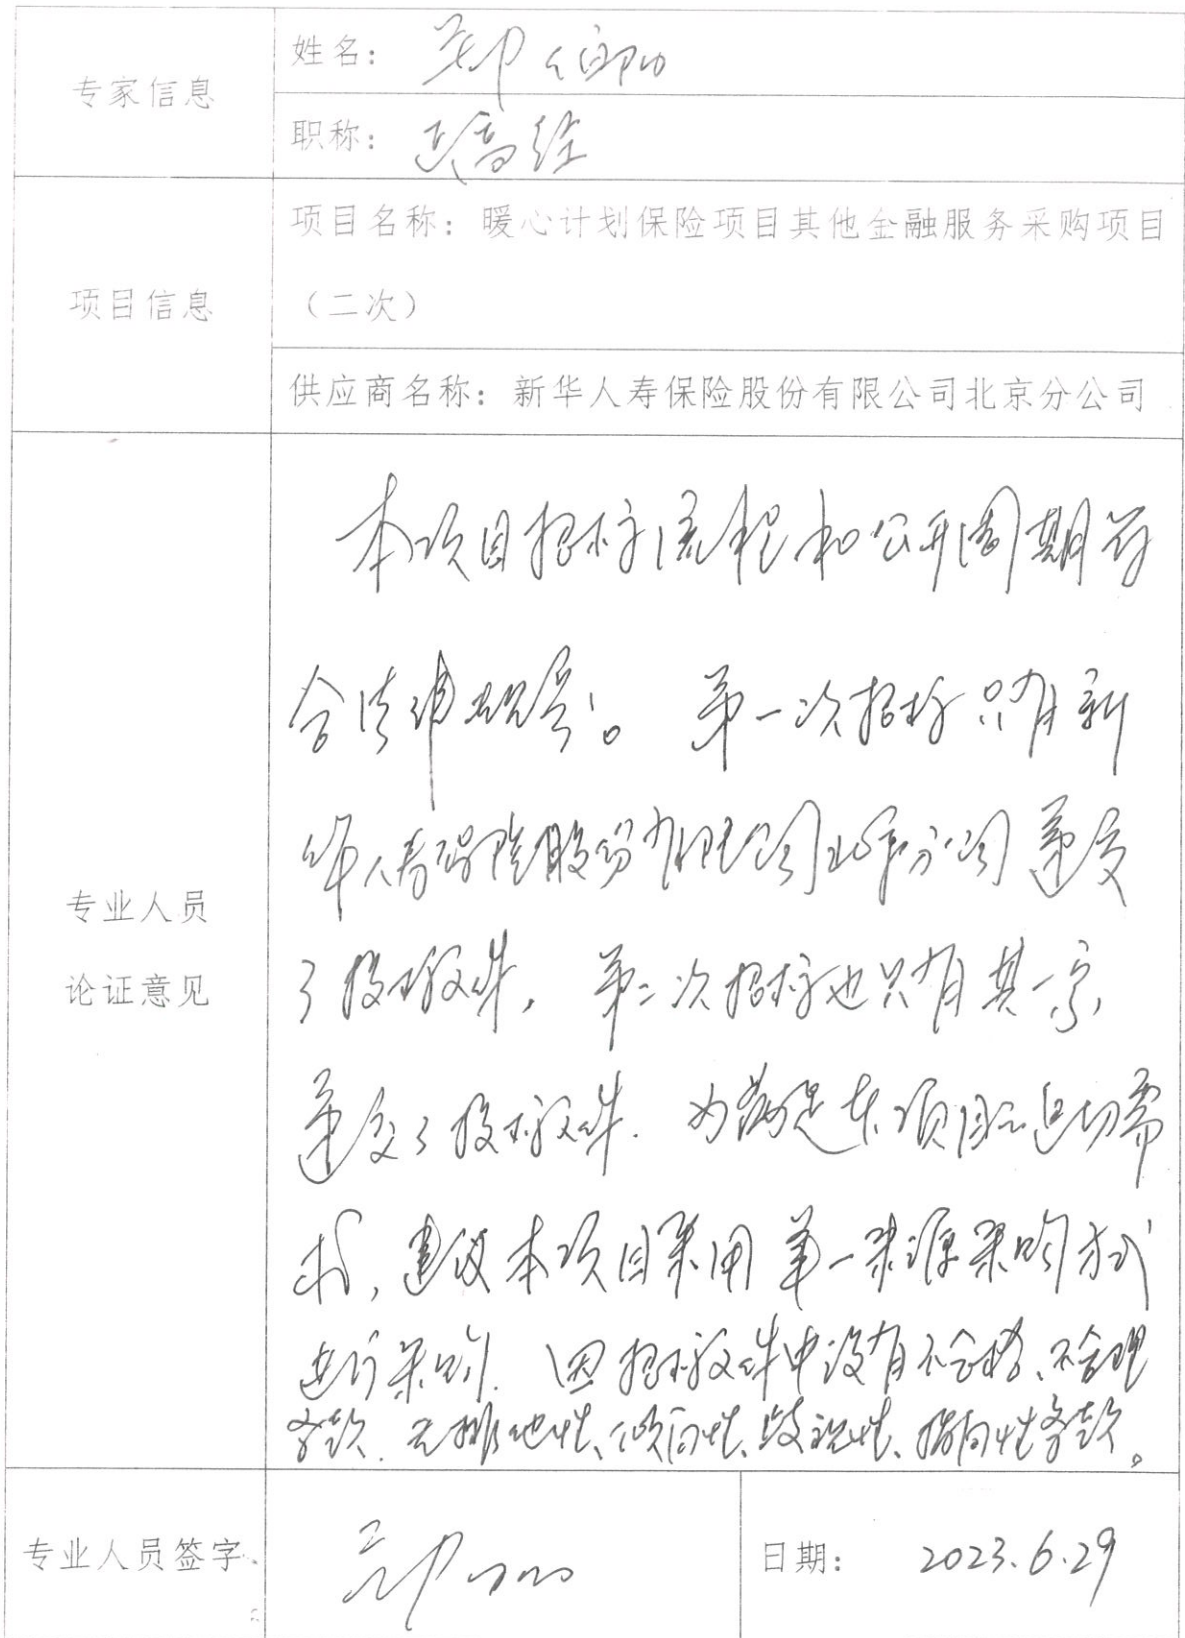 专家信息
姓名：郑
职称：正高经
项目信息
项目名称：暖心计划保险项目其他金融服务采购项目
（二次）
供应商名称：新华人寿保险股份有限公司北京分公司
专业人员
论证意见
本项目招标流程和公开周期符
合法律规定。第一次招标只有新
华人寿保险股份有限公司北京分公司递交
了投标文件，第二次招标也只有其一家
递交了投标文件．为满足本项目的迫切需
求，建议本项目采用单一来源采购方式
进行采购．因招标文件中没有不合格、不合理
条款．无排他性、倾向性、歧视性、指向性条款。
专业人员签字
郑
日期：2023.6.29